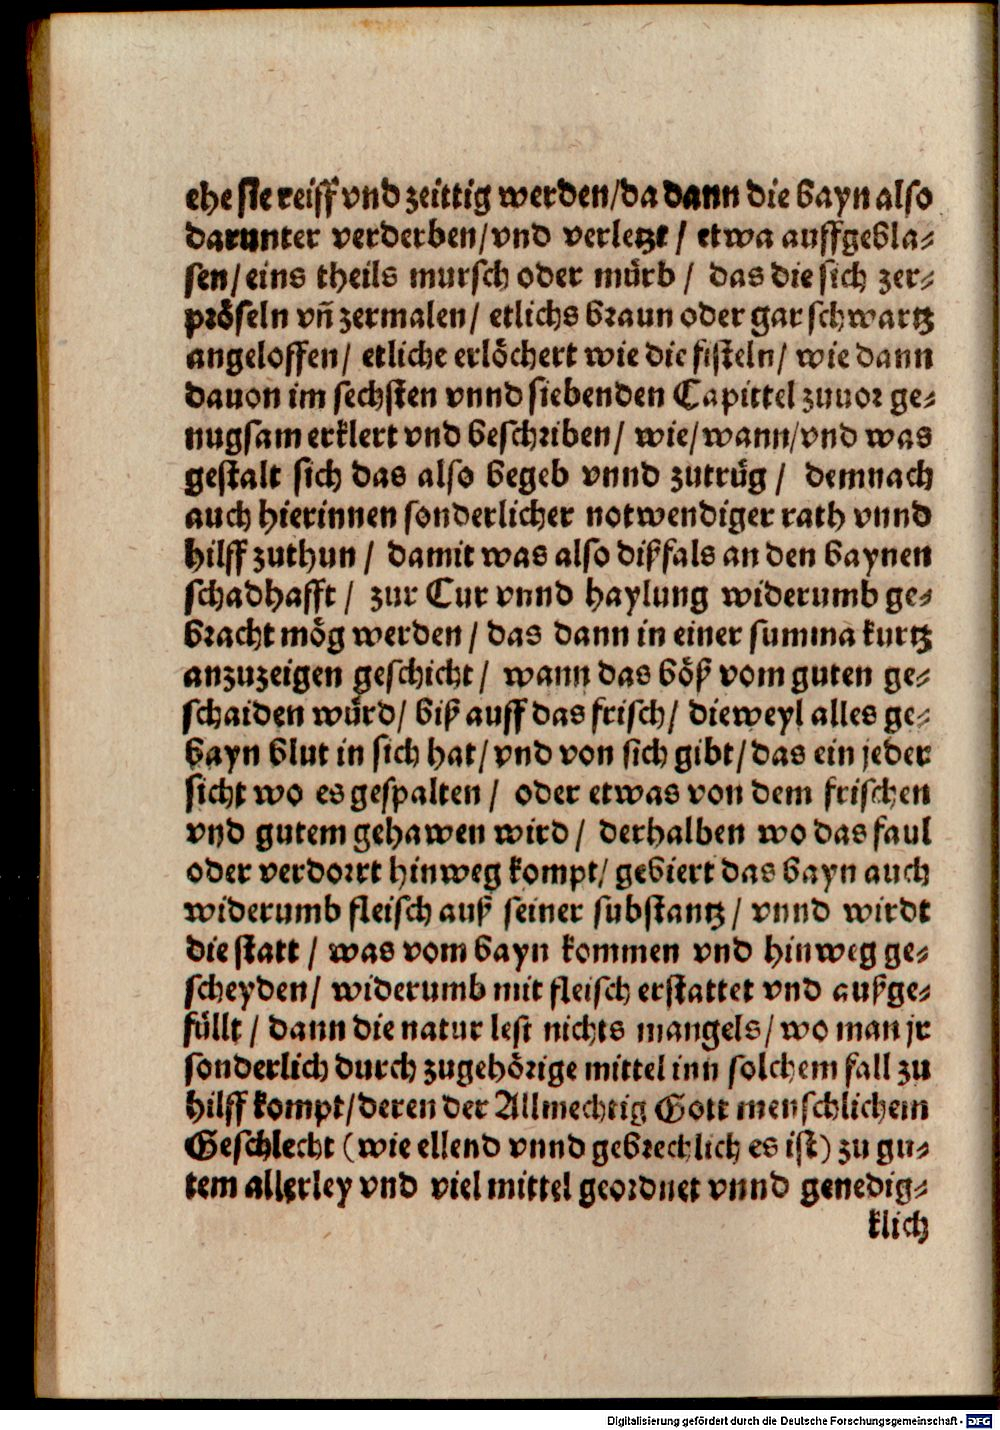 ehe sie reiff vnd zeittig werden/da dann die bayn also
darunter verderben/vnd verletzt / etwa auffgebla⸗
sen/eins theils mursch oder mürb / das die sich zer⸗
pröseln vñ zermalen/ etlichs braun oder gar schwartz
angeloffen/ etliche erlöchert wie die fisteln/ wie dann
dauon im sechsten vnnd siebenden Capittel zuuor ge⸗
nugsam erklert vnd beschriben/ wie/wann/vnd was
gestalt sich das also begeb vnnd zutrüg / demnach
auch hierinnen sonderlicher notwendiger rath vnnd
hilff zuthun / damit was also dißfals an den baynen
schadhafft / zur Cur vnnd haylung widerumb ge⸗
bracht mög werden / das dann in einer summa kurtz
anzuzeigen geschicht / wann das böß vom guten ge⸗
schaiden würd/ biß auff das frisch/ dieweyl alles ge⸗
bayn blut in sich hat/vnd von sich gibt/das ein jeder
sicht wo es gespalten / oder etwas von dem frischen
vnd gutem gehawen wird / derhalben wo das faul
oder verdorrt hinweg kompt/ gebiert das bayn auch
widerumb fleisch auß seiner substantz / vnnd wirdt
die statt / was vom bayn kommen vnd hinweg ge⸗
scheyden/ widerumb mit fleisch erstattet vnd außge⸗
füllt / dann die natur lest nichts mangels/wo man jr
sonderlich durch zugehörige mittel inn solchem fall zu
hilff kompt/deren der Allmechtig Gott menschlichem
Geschlecht (wie ellend vnnd gebrechlich es ist) zu gu⸗
tem allerley vnd viel mittel geordnet vnnd genedig⸗
klich
Digitalisierung gefördert durch die Deutsche Forschungsgemeinschaft - DFG